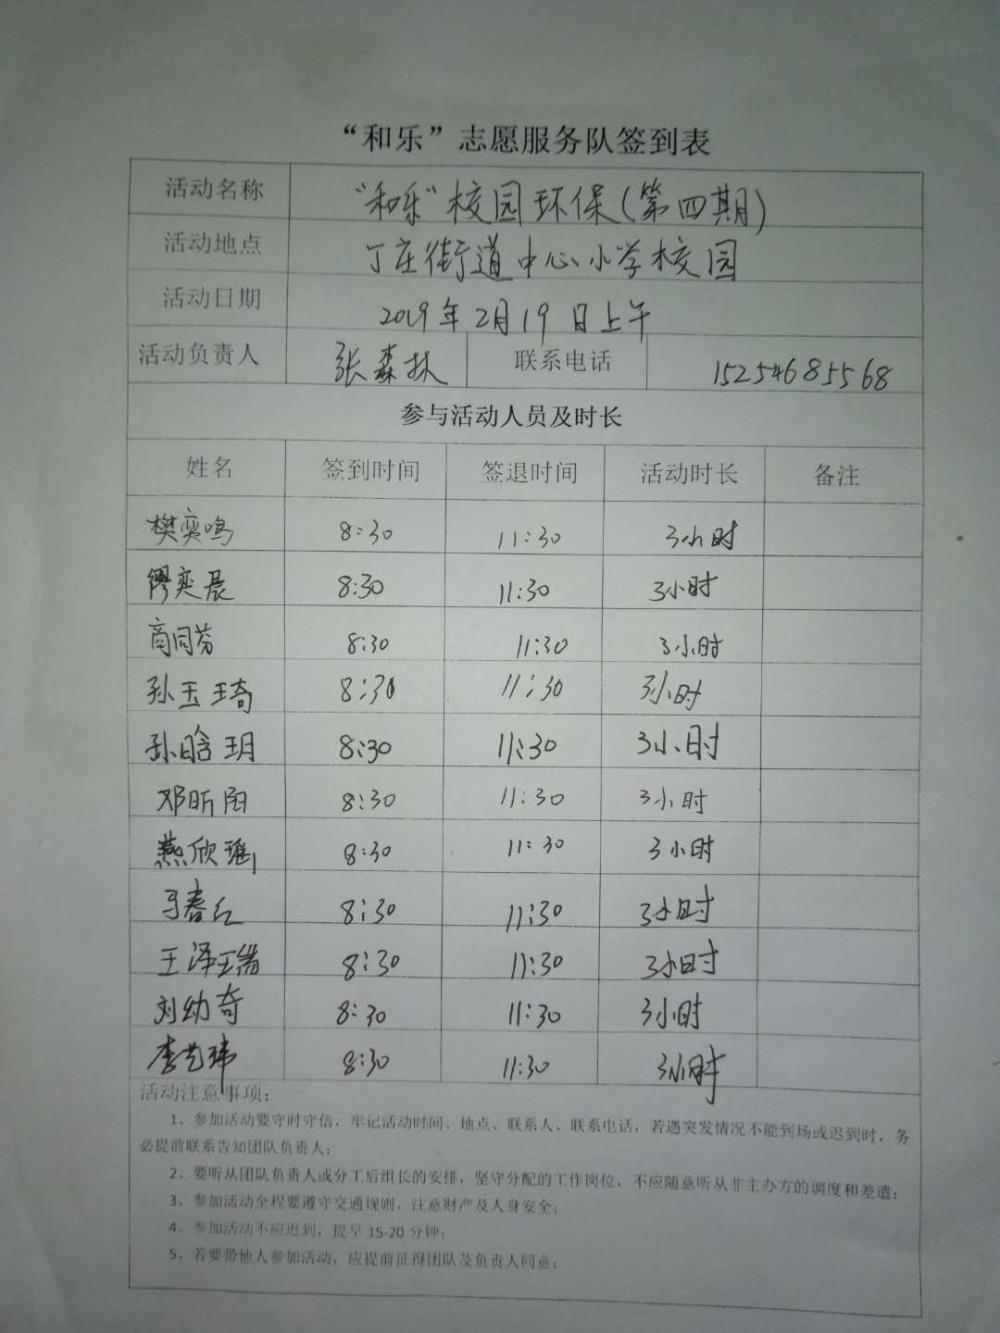 “和乐”志愿服务队签到表
活动名称 “和乐”校园环保(第四期)
活动地点 丁庄街道中心小学校园
活动日期 2019年2月19日上午
活动负责人 张森林 联系电话 15254685568
参与活动人员及时长
姓名 签到时间 签退时间 活动时长 备注
樊奕鸣 8:30 11:30 3小时
缪奕晨 8:30 11:30 3小时
商同芬 8:30 11:30 3小时
孙玉琦 8:30 11:30 3小时
孙晗玥 8:30 11:30 3小时
邓昕阳 8:30 11:30 3小时
燕欣瑶 8:30 11:30 3小时
马春红 8:30 11:30 3小时
王泽瑞 8:30 11:30 3小时
刘幼奇 8:30 11:30 3小时
李艺玮 8:30 11:30 3小时
活动注意事项:
1、参加活动要守时守信,牢记活动时间、地点、联系人、联系电话,若遇突发情况不能到场或迟到时,务
必提前联系告知团队负责人;
2、要听从团队负责人或分工后组长的安排,坚守分配的工作岗位,不应随意听从非主办方的调度和差遣;
3、参加活动全程要遵守交通规则,注意财产及人身安全;
4、参加活动不应迟到,提早15-20分钟;
5、若要带他人参加活动,应提前征得团队及负责人同意;